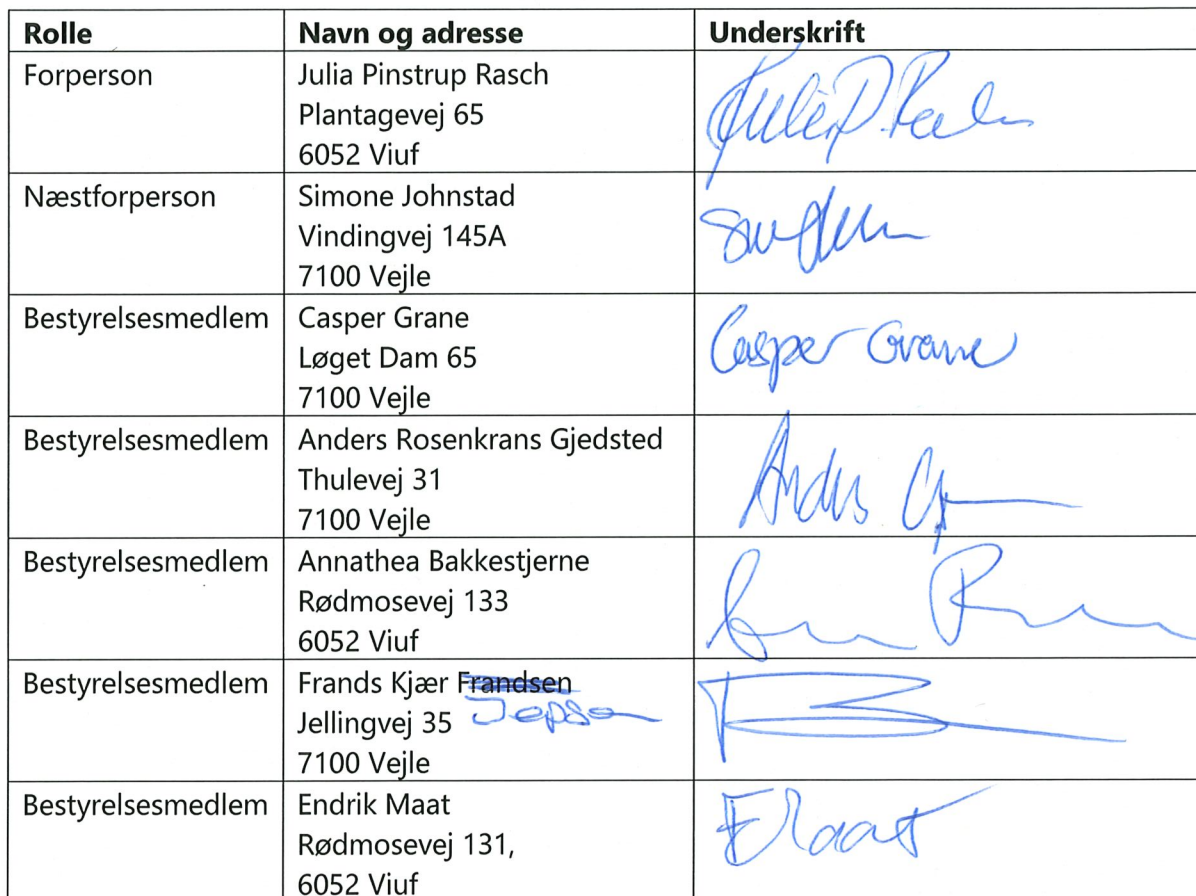 Rolle Navn og adresse Underskrift
Forperson Julia Pinstrup Rasch
Plantagevej 65
6052 Viuf
Næstforperson Simone Johnstad
Vindingvej 145A
7100 Vejle
Bestyrelsesmedlem Casper Grane
Løget Dam 65
7100 Vejle
Casper Grane
Bestyrelsesmedlem Anders Rosenkrans Gjedsted
Thulevej 31
7100 Vejle
Anders
Bestyrelsesmedlem Annathea Bakkestjerne
Rødmosevej 133
6052 Viuf
Bestyrelsesmedlem Frands Kjær Frandsen
Jepsen
Jellingvej 35
7100 Vejle
Bestyrelsesmedlem Endrik Maat
Rødmosevej 131,
6052 Viuf
EMaat